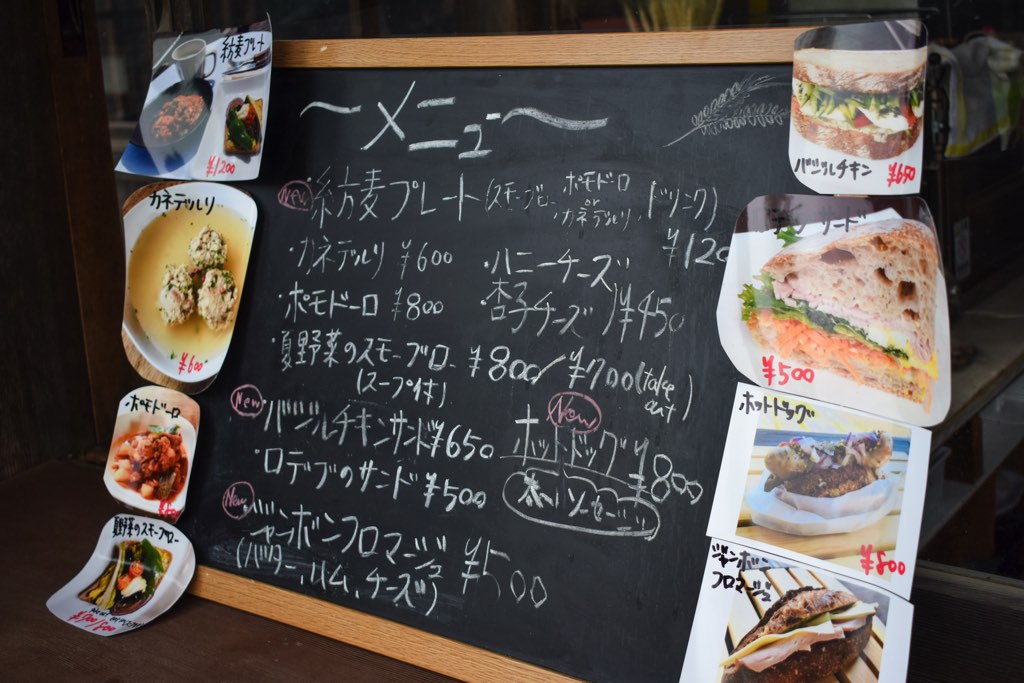 〜メニュー〜
New 紡麦プレート(スモーブロー ポモドーロ or カネデルリ, ドリンク)
¥120
・カネデルリ ¥600
・ハニーチーズ
・杏子チーズ ¥450
・ポモドーロ ¥800
・夏野菜のスモーブロー ¥800/¥700(take out)
(スープ付)
New
・バジルチキンサンド¥650
・ロデブのサンド ¥500
New
ホットドッグ ¥800
ソーセージ
New
・ジャンボンフロマージュ ¥500
(バター、ハム、チーズ)
紡麦プレート
¥1200
カネデルリ
¥600
ポモドーロ
夏野菜のスモーブロー
バジルチキン
¥650
¥500
ホットドッグ
¥800
ジャンボン
フロマージュ